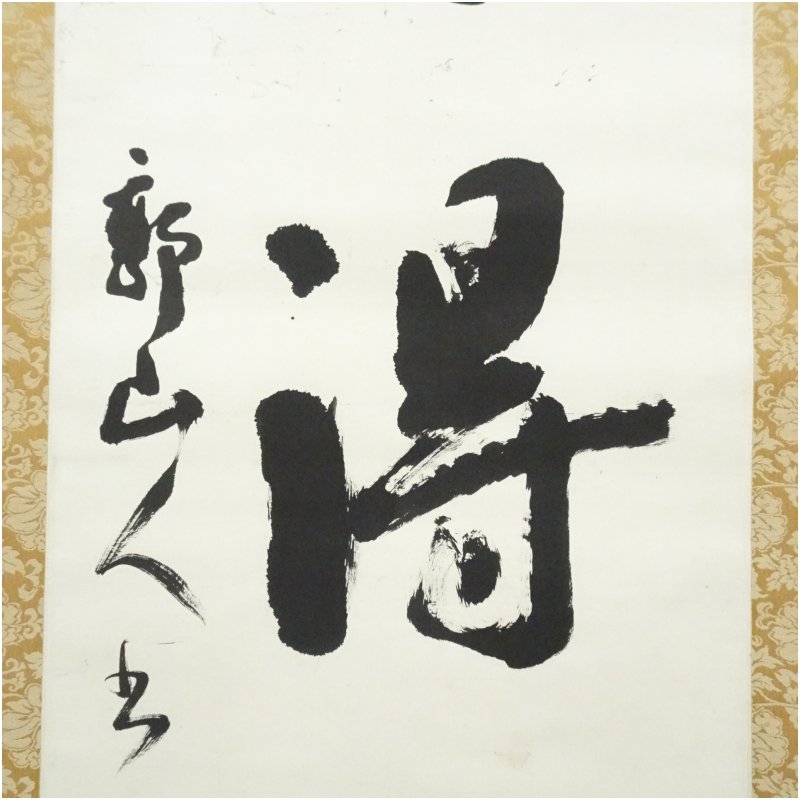 得
郭山人書